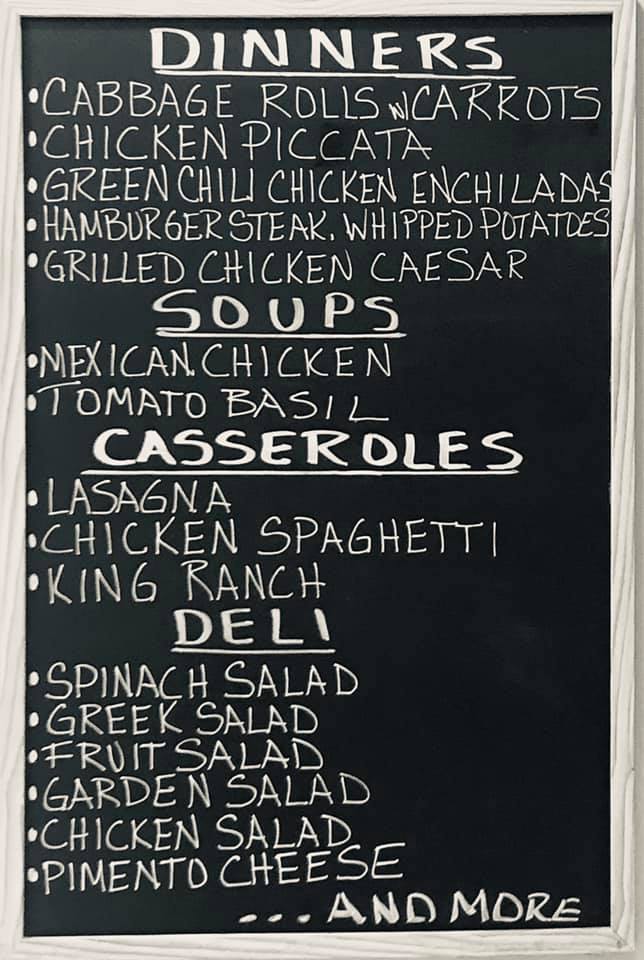 DINNERS
•CABBAGE ROLLS w/CARROTS
•CHICKEN PICCATA
•GREEN CHILI CHICKEN ENCHILADAS
•HAMBURGER STEAK. WHIPPED POTATOES
•GRILLED CHICKEN CAESAR
SOUPS
•MEXICAN CHICKEN
•TOMATO BASIL
CASSEROLES
•LASAGNA
•CHICKEN SPAGHETTI
•KING RANCH
DELI
•SPINACH SALAD
•GREEK SALAD
•FRUIT SALAD
•GARDEN SALAD
•CHICKEN SALAD
•PIMENTO CHEESE
...AND MORE